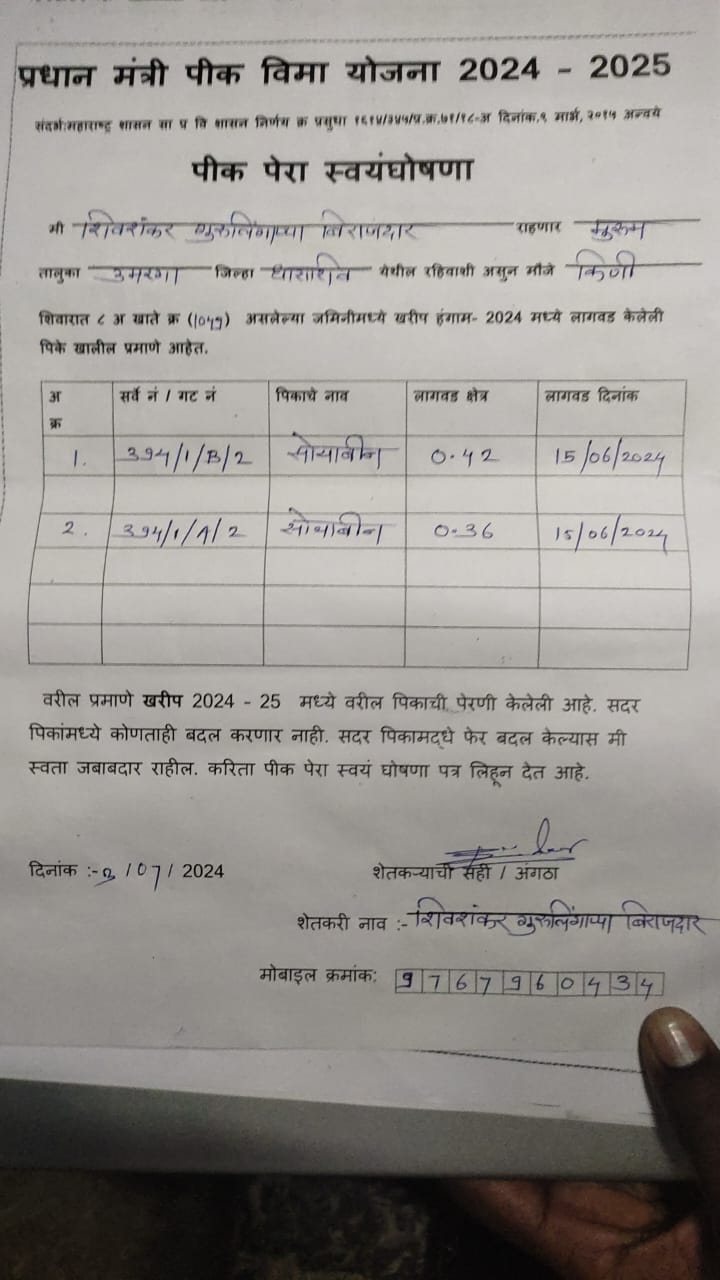 प्रधान मंत्री पीक विमा योजना 2024 - 2025
संदर्भ:महाराष्ट्र शासन सा प्र वि शासन निर्णय क्र प्रसुधा १६१४/३४५/प्र.क्र.७१/१८-अ दिनांक.९ मार्च, २०१५ अन्वये
पीक पेरा स्वयंघोषणा
मी शिवशंकर गुरुलिंगाप्पा बिराजदार राहणार मुरुम
तालुका उमरगा जिल्हा धाराशिव येथील रहिवाशी असुन मौजे किणी
शिवारात ८ अ खाते क्र (1049) असलेल्या जमिनीमध्ये खरीप हंगाम- 2024 मध्ये लागवड केलेली
पिके खालील प्रमाणे आहेत.
अ क्र सर्वे नं / गट नं पिकाचे नाव लागवड क्षेत्र लागवड दिनांक
1. 394/1/B/2 सोयाबीन 0.42 15/06/2024
2. 394/1/A/2 सोयाबीन 0.36 15/06/2024
वरील प्रमाणे खरीप 2024 - 25 मध्ये वरील पिकाची पेरणी केलेली आहे. सदर
पिकांमध्ये कोणताही बदल करणार नाही. सदर पिकामद्धे फेर बदल केल्यास मी
स्वता जबाबदार राहील. करिता पीक पेरा स्वयं घोषणा पत्र लिहून देत आहे.
दिनांक :- /07/ 2024 शेतकऱ्याची सही / अंगठा
शेतकरी नाव :- शिवशंकर गुरुलिंगाप्पा बिराजदार
मोबाइल क्रमांक: 9767960434